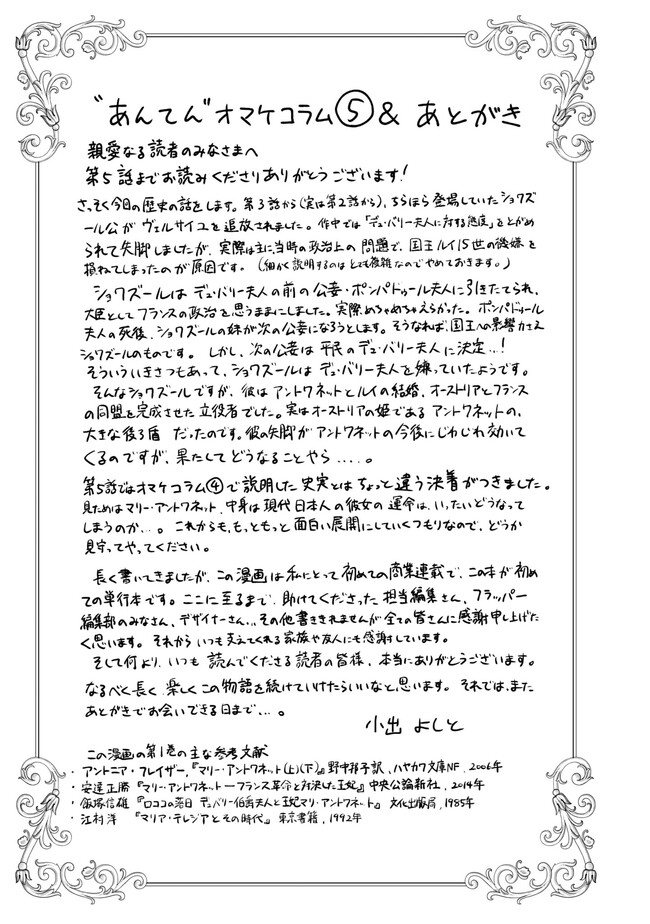 "あんてん"オマケコラム⑤& あとがき
親愛なる読者のみなさまへ
第5話までお読みくださりありがとうございます!
さっそく今日の歴史の話をします。第3話から(実は第2話から)、ちらほら登場していたショワズ
ール公がヴェルサイユを追放されました。作中では「デュ・バリー夫人に対する態度」をとがめ
られて失脚しましたが、実際は主に当時の政治上の問題で、国王ルイ15世の機嫌を
損ねてしまったのが原因です。(細かく説明するのはとても複雑なのでやめておきます。)
ショワズールはデュ・バリー夫人の前の公妾・ポンパドゥール夫人に引きたてられ、
大臣としてフランスの政治を思うままにしました。実際めちゃめちゃえらかった。ポンパドゥール
夫人の死後、ショワズールの妹が次の公妾になろうとします。そうなれば、国王への影響力さえ
ショワズールのものです。しかし、次の公妾は平民のデュ・バリー夫人に決定…!
そういういきさつもあって、ショワズールはデュ・バリー夫人を嫌っていたようです。
そんなショワズールですが、彼はアントワネットとルイの結婚、オーストリアとフランス
の同盟を完成させた立役者でした。実はオーストリアの姫であるアントワネットの、
大きな後ろ盾 だったのです。彼の失脚がアントワネットの今後にじわじわ効いて
くるのですが、果たしてどうなることやら…..。
第5話ではオマケコラム④で説明した史実とはちょっと違う決着がつきました。
見ためはマリー・アントワネット、中身は現代日本人の彼女の運命は、いったいどうなって
しまうのか…。これからも、もっともっと面白い展開にしていくつもりなので、どうか
見守ってやってください。
長く書いてきましたが、この漫画は私にとって初めての商業連載で、この本が初め
ての単行本です。ここに至るまで、助けてくださった担当編集さん、フラッパー
編集部のみなさん、デザイナーさん…その他書ききれませんが全ての皆さんに感謝申し上げた
く思います。それからいつも支えてくれる家族や友人にも感謝しています。
そして何より、いつも読んでくださる読者の皆様、本当にありがとうございます。
なるべく長く、楽しくこの物語を続けていけたらいいなと思います。それでは、また
あとがきでお会いできる日まで…。
小出 よしと
この漫画の第1巻の主な参考文献
・アントニア・フレイザー,『マリー・アントワネット(上)(下)』野中邦子訳、ハヤカワ文庫NF、2006年
・安達正勝『マリー・アントワネット―フランス革命と対決した王妃』中央公論新社、2014年
・飯塚信雄『ロココの落日 デュ・バリー伯爵夫人と王妃マリ・アントワネット』文化出版局、1985年
・江村洋 『マリア・テレジアとその時代』東京書籍、1992年